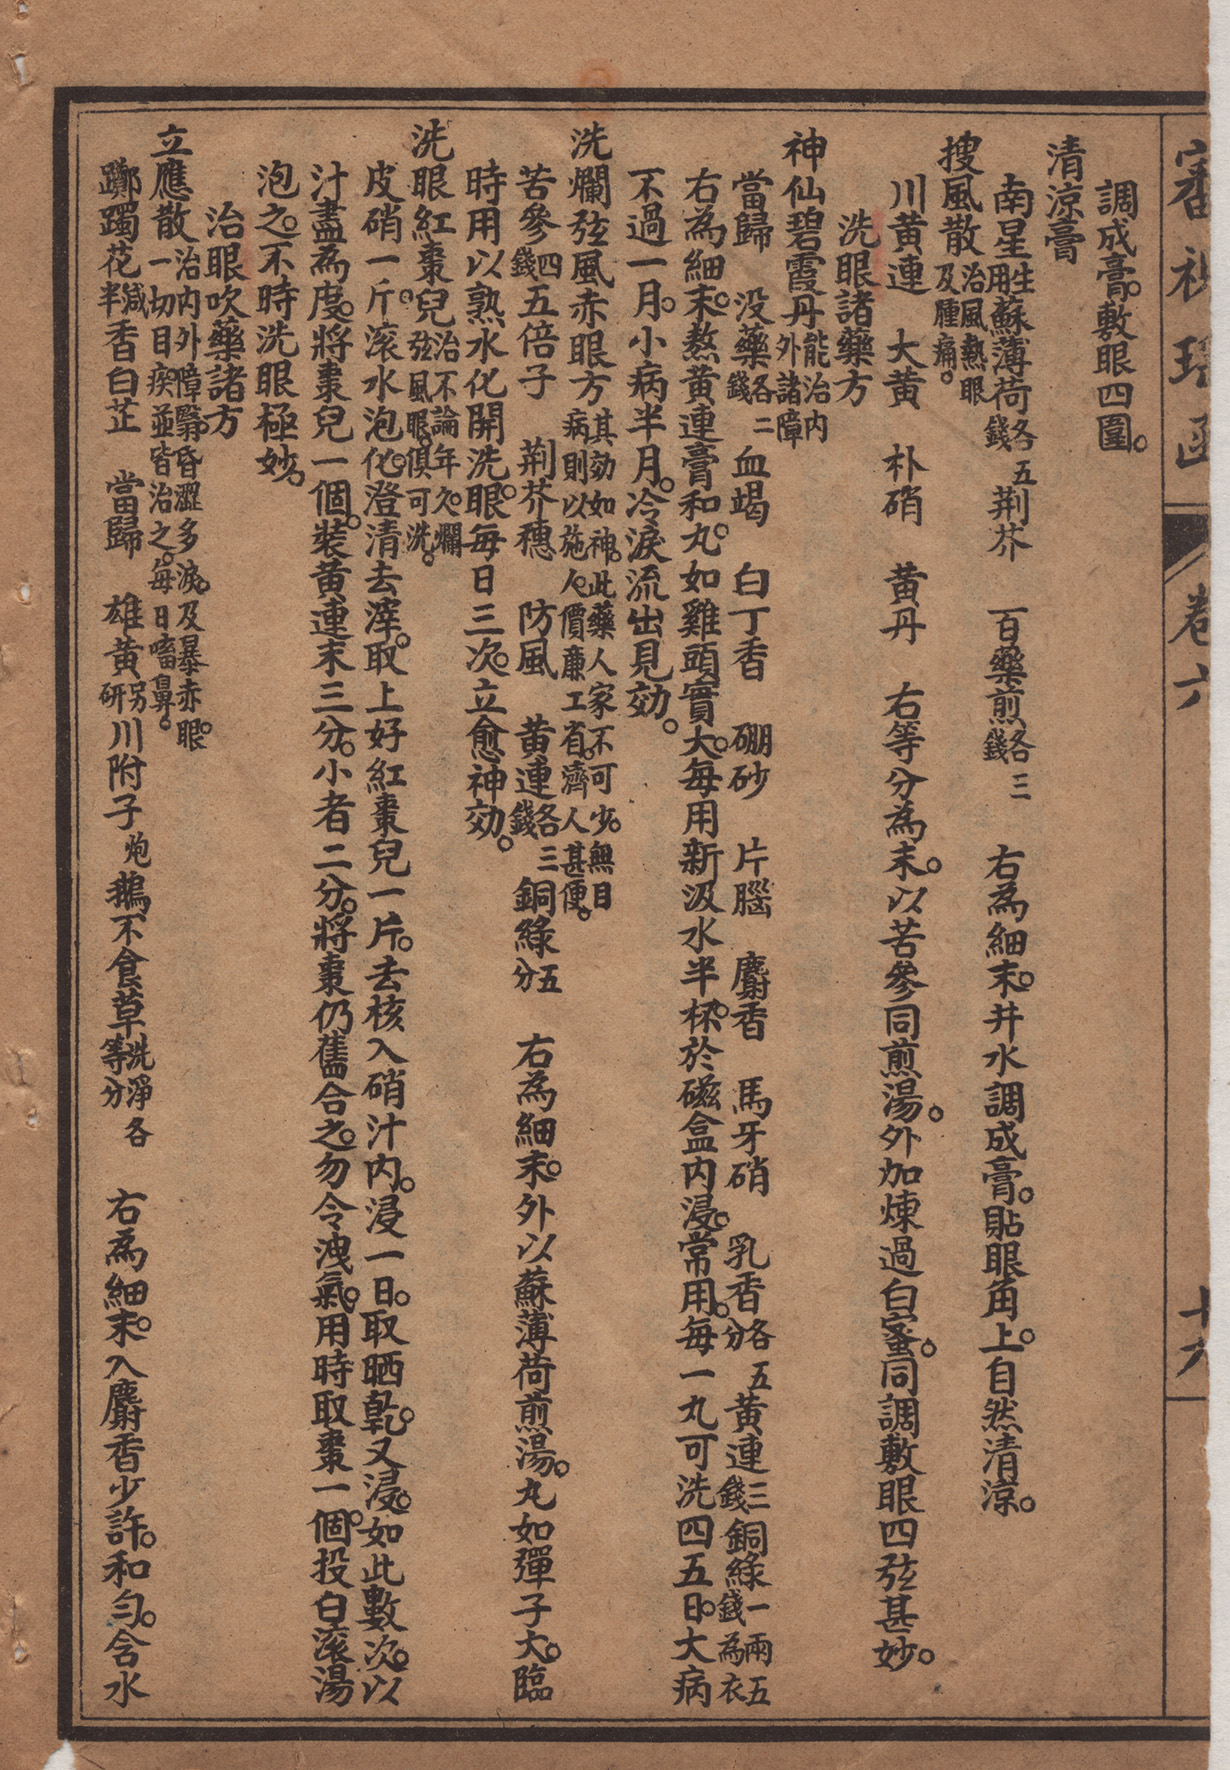 審視瑤函 卷六 十六
調成膏。敷眼四圍。
清涼膏
南星生用 蘇薄荷各五錢 荆芥 百藥煎各三錢 右為細末。井水調成膏。貼眼角上。自然清涼。
搜風散治風熱眼及腫痛。
川黃連 大黃 朴硝 黃丹 右等分為末。以苦參同煎湯。外加煉過白蜜。同調敷眼四弦甚妙。
洗眼諸藥方
神仙碧霞丹能治內外諸障
當歸 没藥各二錢 血竭 白丁香 硼砂 片腦 麝香 馬牙硝 乳香各五分 黃連三錢 銅綠一兩五錢為衣
右為細末。熬黃連膏和丸。如雞頭實大。每用新汲水半杯。於磁盒內浸。常用。每一丸可洗四五日。大病
不過一月。小病半月。冷淚流出見効。
洗爛弦風赤眼方其効如神。此藥人家不可少。無目病則以施人。價廉工省。濟人甚便。
苦參四錢 五倍子 荆芥穗 防風 黃連各三錢 銅綠五分 右為細末。外以蘇薄荷煎湯。丸如彈子大。臨
時用以熟水化開洗眼。每日三次。立愈神効。
洗眼紅棗兒治不論年久爛弦風眼。俱可洗。
皮硝一斤。滾水泡化。澄清去滓。取上好紅棗兒一片。去核入硝汁內。浸一日。取晒乾。又浸。如此數次。以
汁盡為度。將棗兒一個。裝黃連末三分。小者二分。將棗仍舊合之。勿令洩氣。用時取棗一個。投白滾湯
泡之。不時洗眼極妙。
治眼吹藥諸方
立應散治內外障翳。昏澀多淚。及暴赤眼。一切目疾。並皆治之。每日㗜鼻。
躑躅花減半 香白芷 當歸 雄黃另研 川附子炮 鵝不食草洗淨各等分 右為細末。入麝香少許。和勻。含水